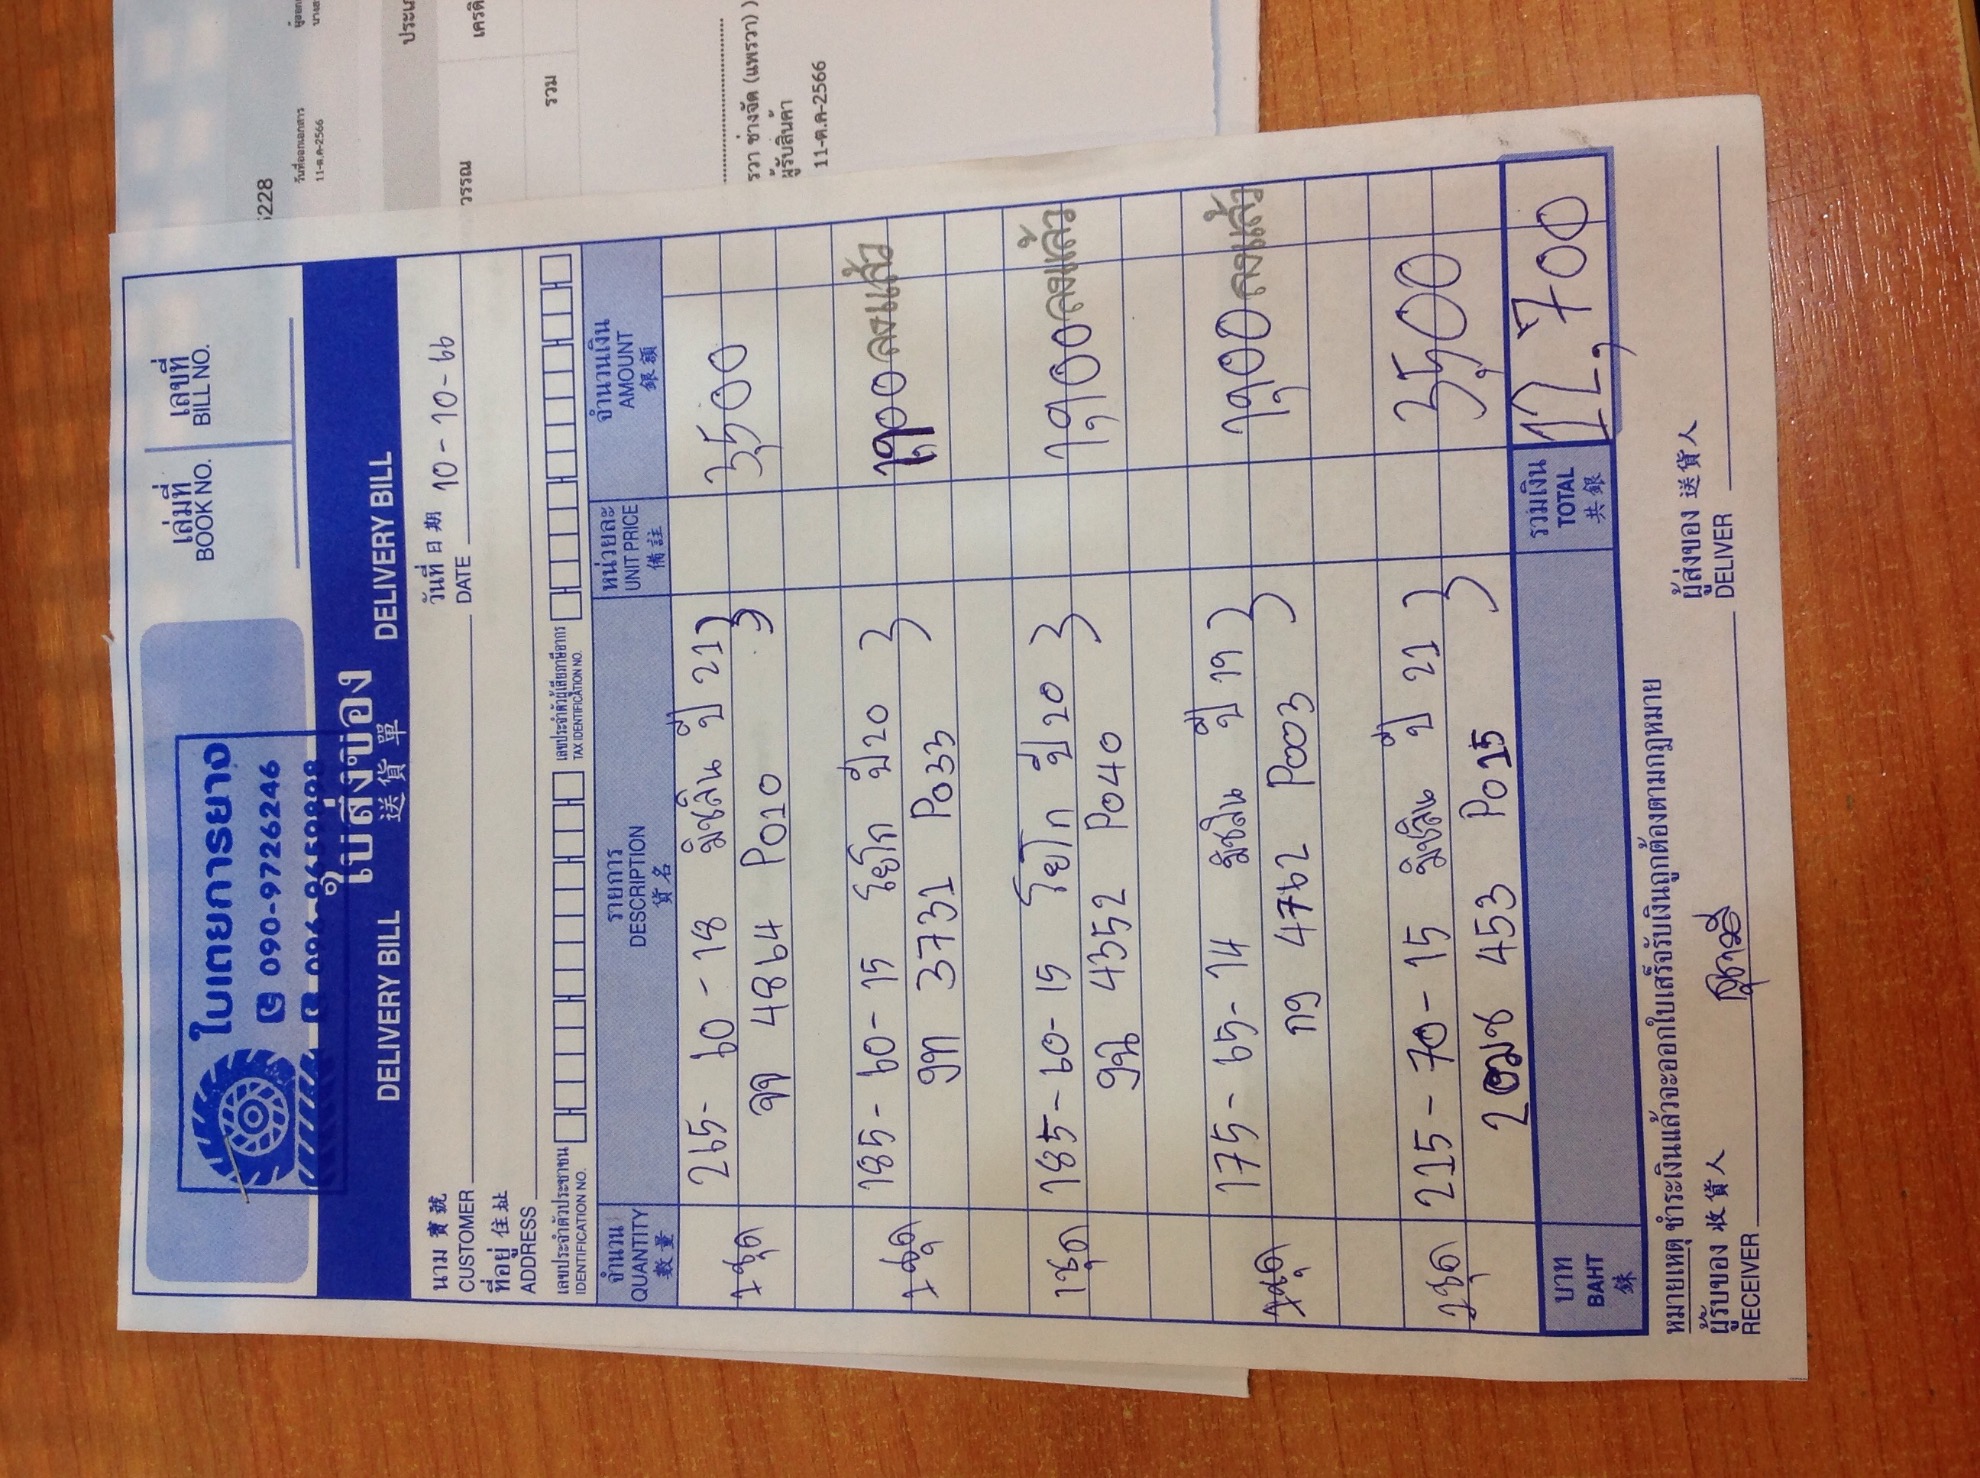 ใบเตยการยาง
090-9726246
096-9659998
เล่มที่ เลขที่
BOOK NO. BILL NO.
ใบส่งของ
DELIVERY BILL 送貨單 DELIVERY BILL
นาม 寶號 วันที่ 日期 10-10-66
CUSTOMER DATE
ที่อยู่ 住址
ADDRESS
เลขประจำตัวประชาชน เลขประจำตัวผู้เสียภาษีอากร
IDENTIFICATION NO. TAX IDENTIFICATION NO.
จำนวน รายการ หน่วยละ จำนวนเงิน
QUANTITY DESCRIPTION UNIT PRICE AMOUNT
數量 貨名 備註 銀額
1ชุด 265-60-18 มิชลิน ปี 21 3,500
4864 P010
1ชุด 185-60-15 โยโก ปี 20 1,900 ลงแล้ว
3731 P033
1ชุด 185-60-15 โยโก ปี 20 1,900 ลงแล้ว
4352 P040
1ชุด 175-65-14 มิชลิน ปี 19 1,900 ลงแล้ว
กง 4762 P003
1ชุด 215-70-15 มิชลิน ปี 21 3,500
2ฒช 453 P015
บาท รวมเงิน 12,700
BAHT TOTAL
銖 共銀
หมายเหตุ ชำระเงินแล้วจะออกใบเสร็จรับเงินถูกต้องตามกฎหมาย
ผู้รับของ 收貨人 ผู้ส่งของ 送貨人
RECEIVER DELIVER
5228
วันที่ออกเอกสาร
11-ต.ค-2566
วรรณ
รวม
รวา ช่างจัด (แพรวา) )
ผู้รับสินค้า
11-ต.ค-2566